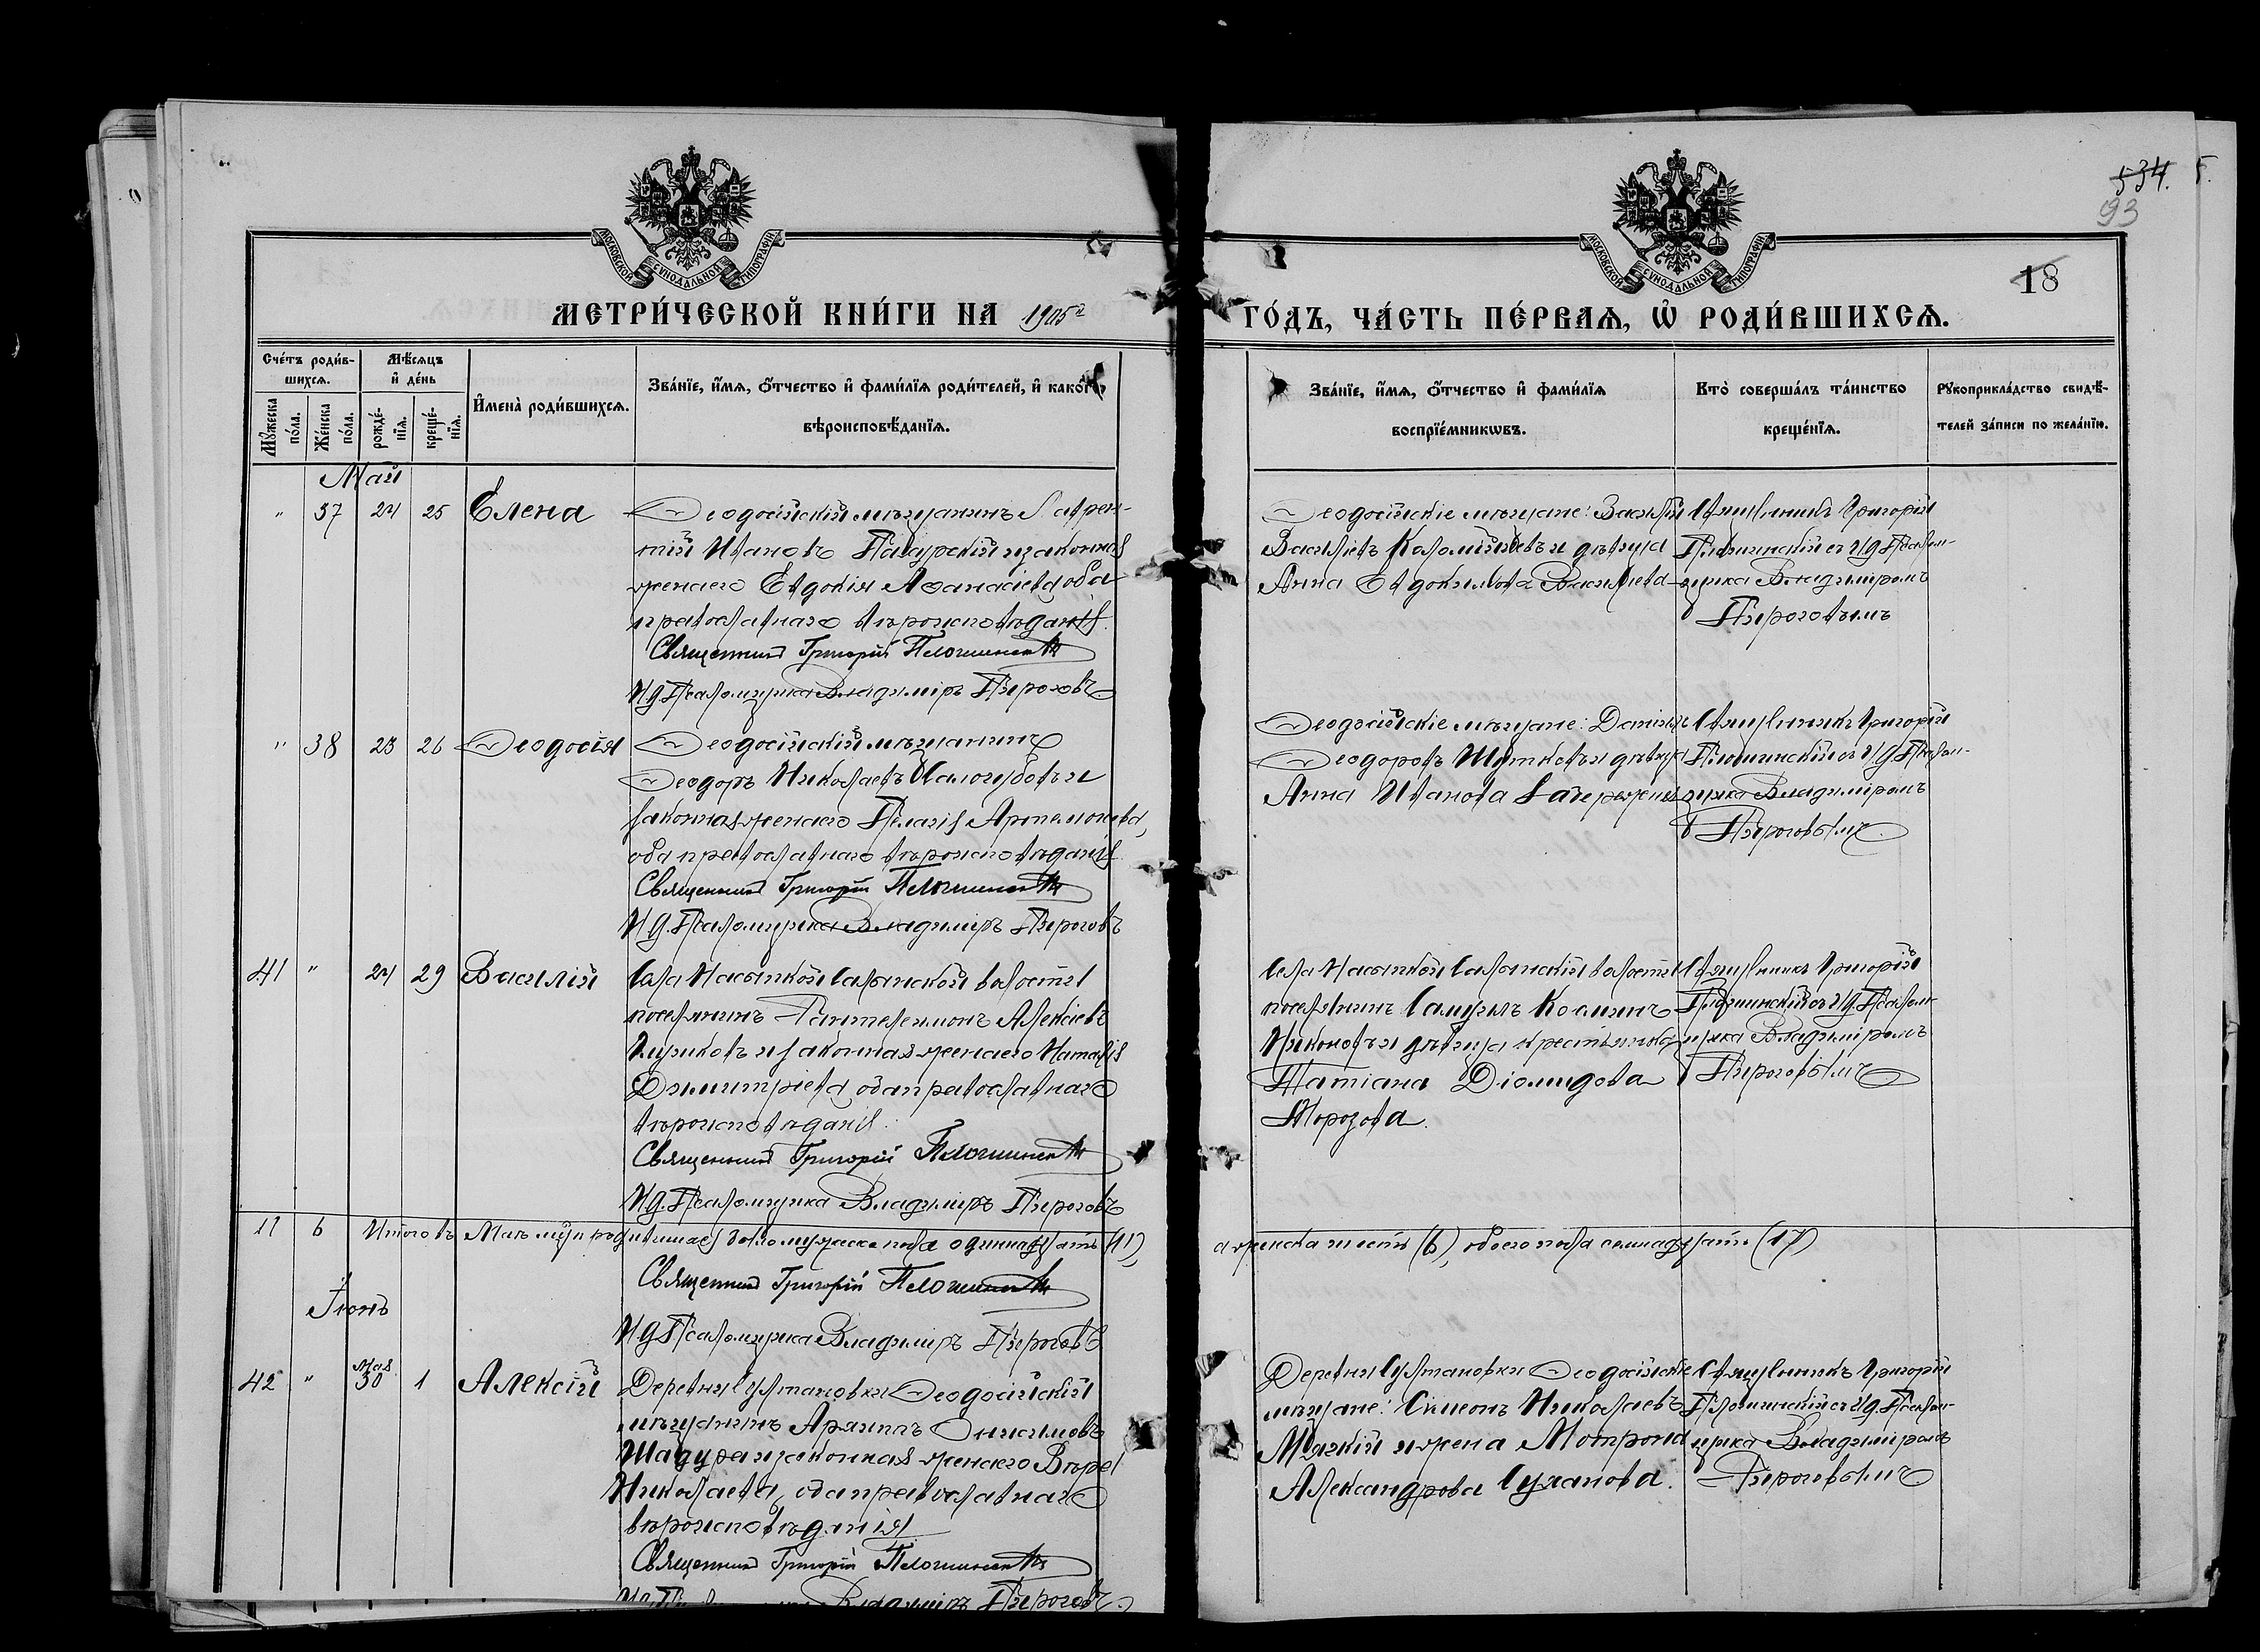 534.
93
18
МОСКОВСКОЙ СѴНОДАЛЬНОЙ ТИПОГРАФІИ
МОСКОВСКОЙ СѴНОДАЛЬНОЙ ТИПОГРАФІИ
МЕТРИ́ЧЕСКОЙ КНИ́ГИ НА 1905й
ГО́ДЪ, ЧА́СТЬ ПЕ́РВАѦ, Ѡ҆ РОДИ́ВШИХСѦ.
Сче́тъ роди́в-
шихсѧ.
Мꙋ́жеска по́ла.
Же́нска по́ла.
Мѣ́сѧцъ
и҆ де́нь
рожде́-
нїѧ.
креще́-
нїѧ.
И҆мена̀ роди́вшихсѧ.
Зва́нїе, и҆́мѧ, ѻ҆́тчество и҆ фами́лїѧ роди́телей, и҆ како́гѡ
вѣроисповѣ́данїѧ.
Зва́нїе, и҆́мѧ, ѻ҆́тчество и҆ фами́лїѧ
воспрїе́мникѡвъ.
Кто̀ соверша́лъ та́инство
креще́нїѧ.
Рꙋкоприкла́дство свидѣ́-
телей за́писи по жела́нїю.
Май
" 37 24 25 Елена
Ѳеодосійскій мѣщанинъ Лаврен-
тій Ивановъ и законная
жена его Евдокія Аѳанасіева оба
православнаго вѣроисповѣданія.
Священникъ Григорій
И.д. Псаломщика Владиміръ Пироговъ
Ѳеодосійскіе мѣщане: Василій
Васильевъ и дѣвица
Анна Евдокимова Васильева
Священникъ Григорій
съ И.д. Псалом-
щика Владиміромъ
Пироговымъ
" 38 23 26 Ѳеодосія
Ѳеодосійскій мѣщанинъ
Ѳеодоръ Николаевъ и
законная жена его Пелагія Артемонова,
оба православнаго вѣроисповѣданія
Священникъ Григорій
И.д. Псаломщика Владиміръ Пироговъ
Ѳеодосійскіе мѣщане: Даніилъ
Ѳеодоровъ Шутковъ и дѣвица
Анна Иванова
Священникъ Григорій
съ И.д. Псалом-
щика Владиміромъ
Пироговымъ
41 " 24 29 Василій
Села Насыпкой Салынской волости
поселянинъ Пантелеимонъ Алексіевъ
и законная жена его Наталія
Димитріева, оба православнаго
вѣроисповѣданія.
Священникъ Григорій
И.д. Псаломщика Владиміръ Пироговъ
Села Насыпкой Салынской волости
поселянинъ Самуилъ Косминъ
Никоновъ и дѣвица крестьянка
Татіана Діомидова
Морозова.
Священникъ Григорій
съ И.д. Псалом-
щика Владиміромъ
Пироговымъ
11 6 Итого въ Маѣ м-цѣ родившихся было мужеска пола одиннадцать (11),
а женска шесть (6), обоего пола семнадцать (17)
Священникъ Григорій
И.д. Псаломщика Владиміръ Пироговъ
Іюнь
42 " Мая 30 1 Алексій
Деревни Султановки Ѳеодосійскій
мѣщанинъ Архипъ Онисимовъ
Шадура и законная жена его Вѣра
Николаева, оба православнаго
вѣроисповѣданія
Священникъ Григорій
Владиміръ Пироговъ
Деревни Султановки Ѳеодосійскіе
мѣщане: Симеонъ Николаевъ
Мягкій и жена Матрона
Александрова Суханова.
Священникъ Григорій
съ И.д. Псалом-
щика Владиміромъ
Пироговымъ